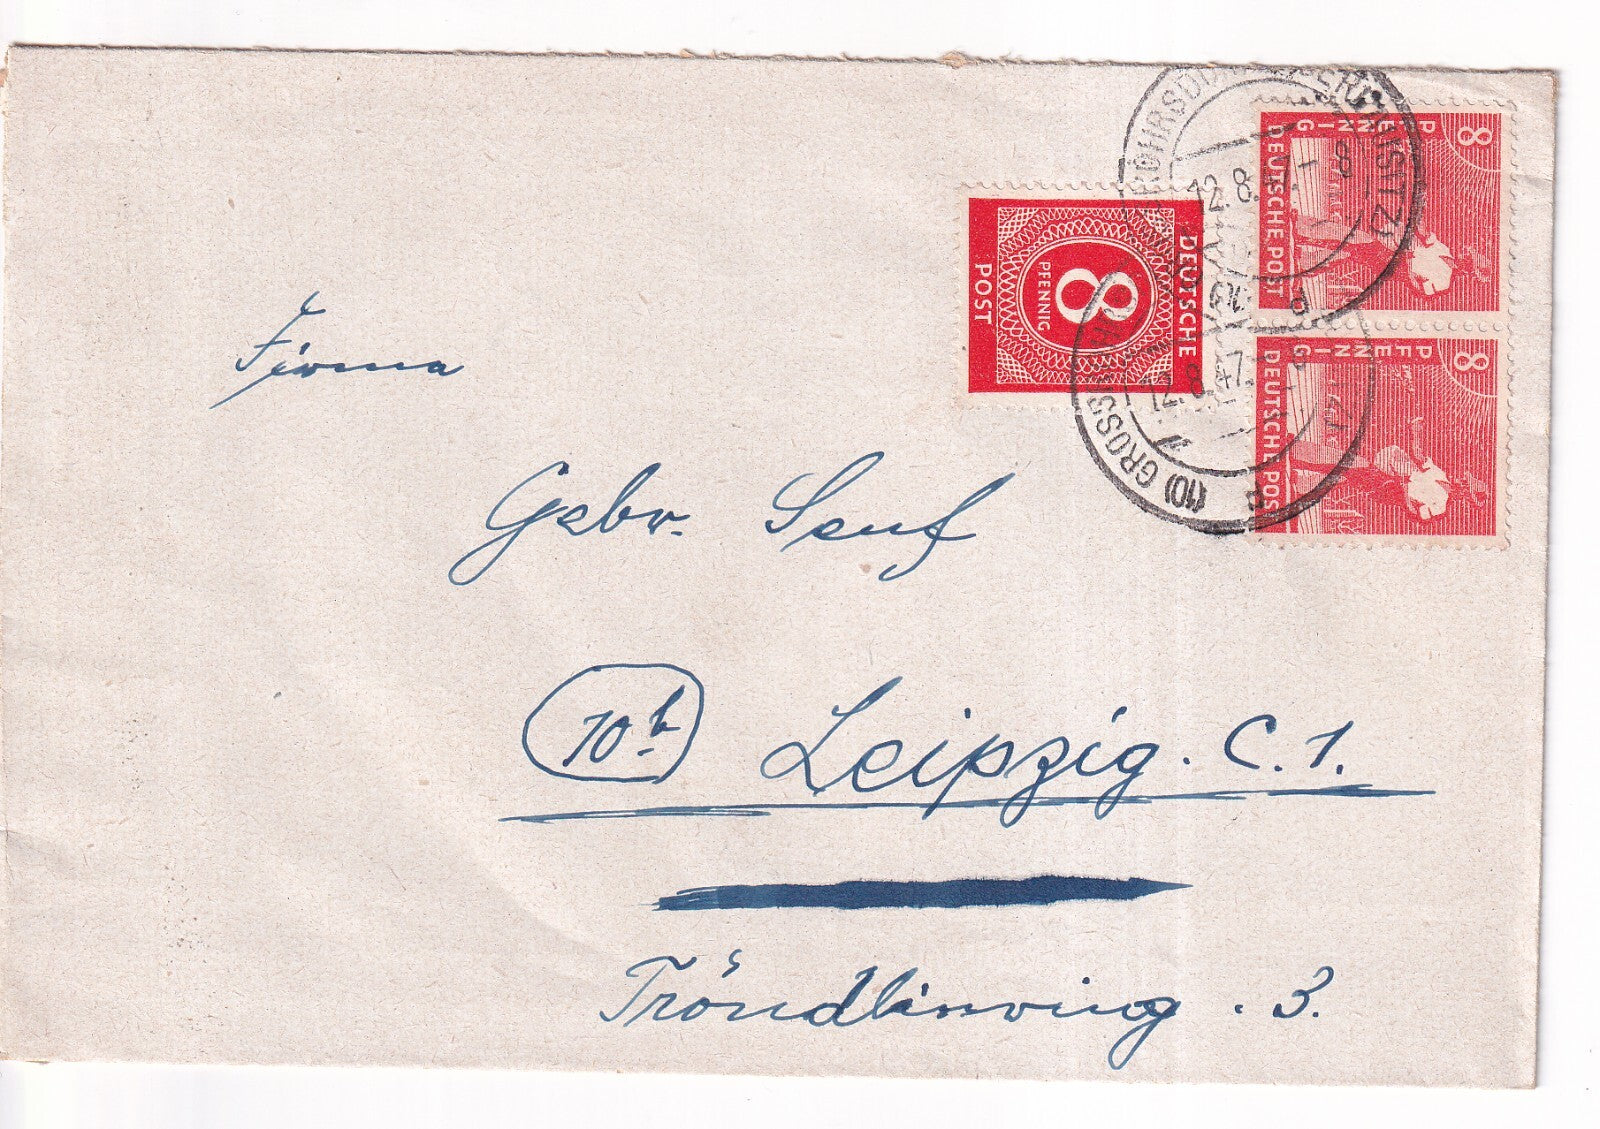 8
PFENNIG
DEUTSCHE POST
8
PFENNIG
DEUTSCHE POST
DEUTSCHE
8
PFENNIG
POST
12.8. 8
12.8.47.
(10) GROSS
a
Firma
Gebr. Senf
10b Leipzig. C. 1.
Tröndlinring. 3.